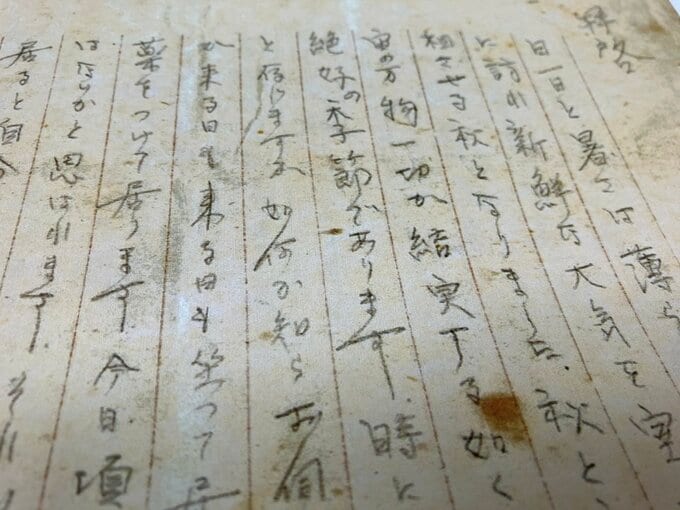 拝啓
日一日と暑さは薄ら
に訪れ新鮮な大気を
和させる秋となりました.秋と
宙の万物一切が結実する如く
絶好の季節であります.時に
と信じますが如何が知らお伺
か来る日も来る日も
薬をつけて居ります今日.頃
はないかと思はれます.それ
居ると自分